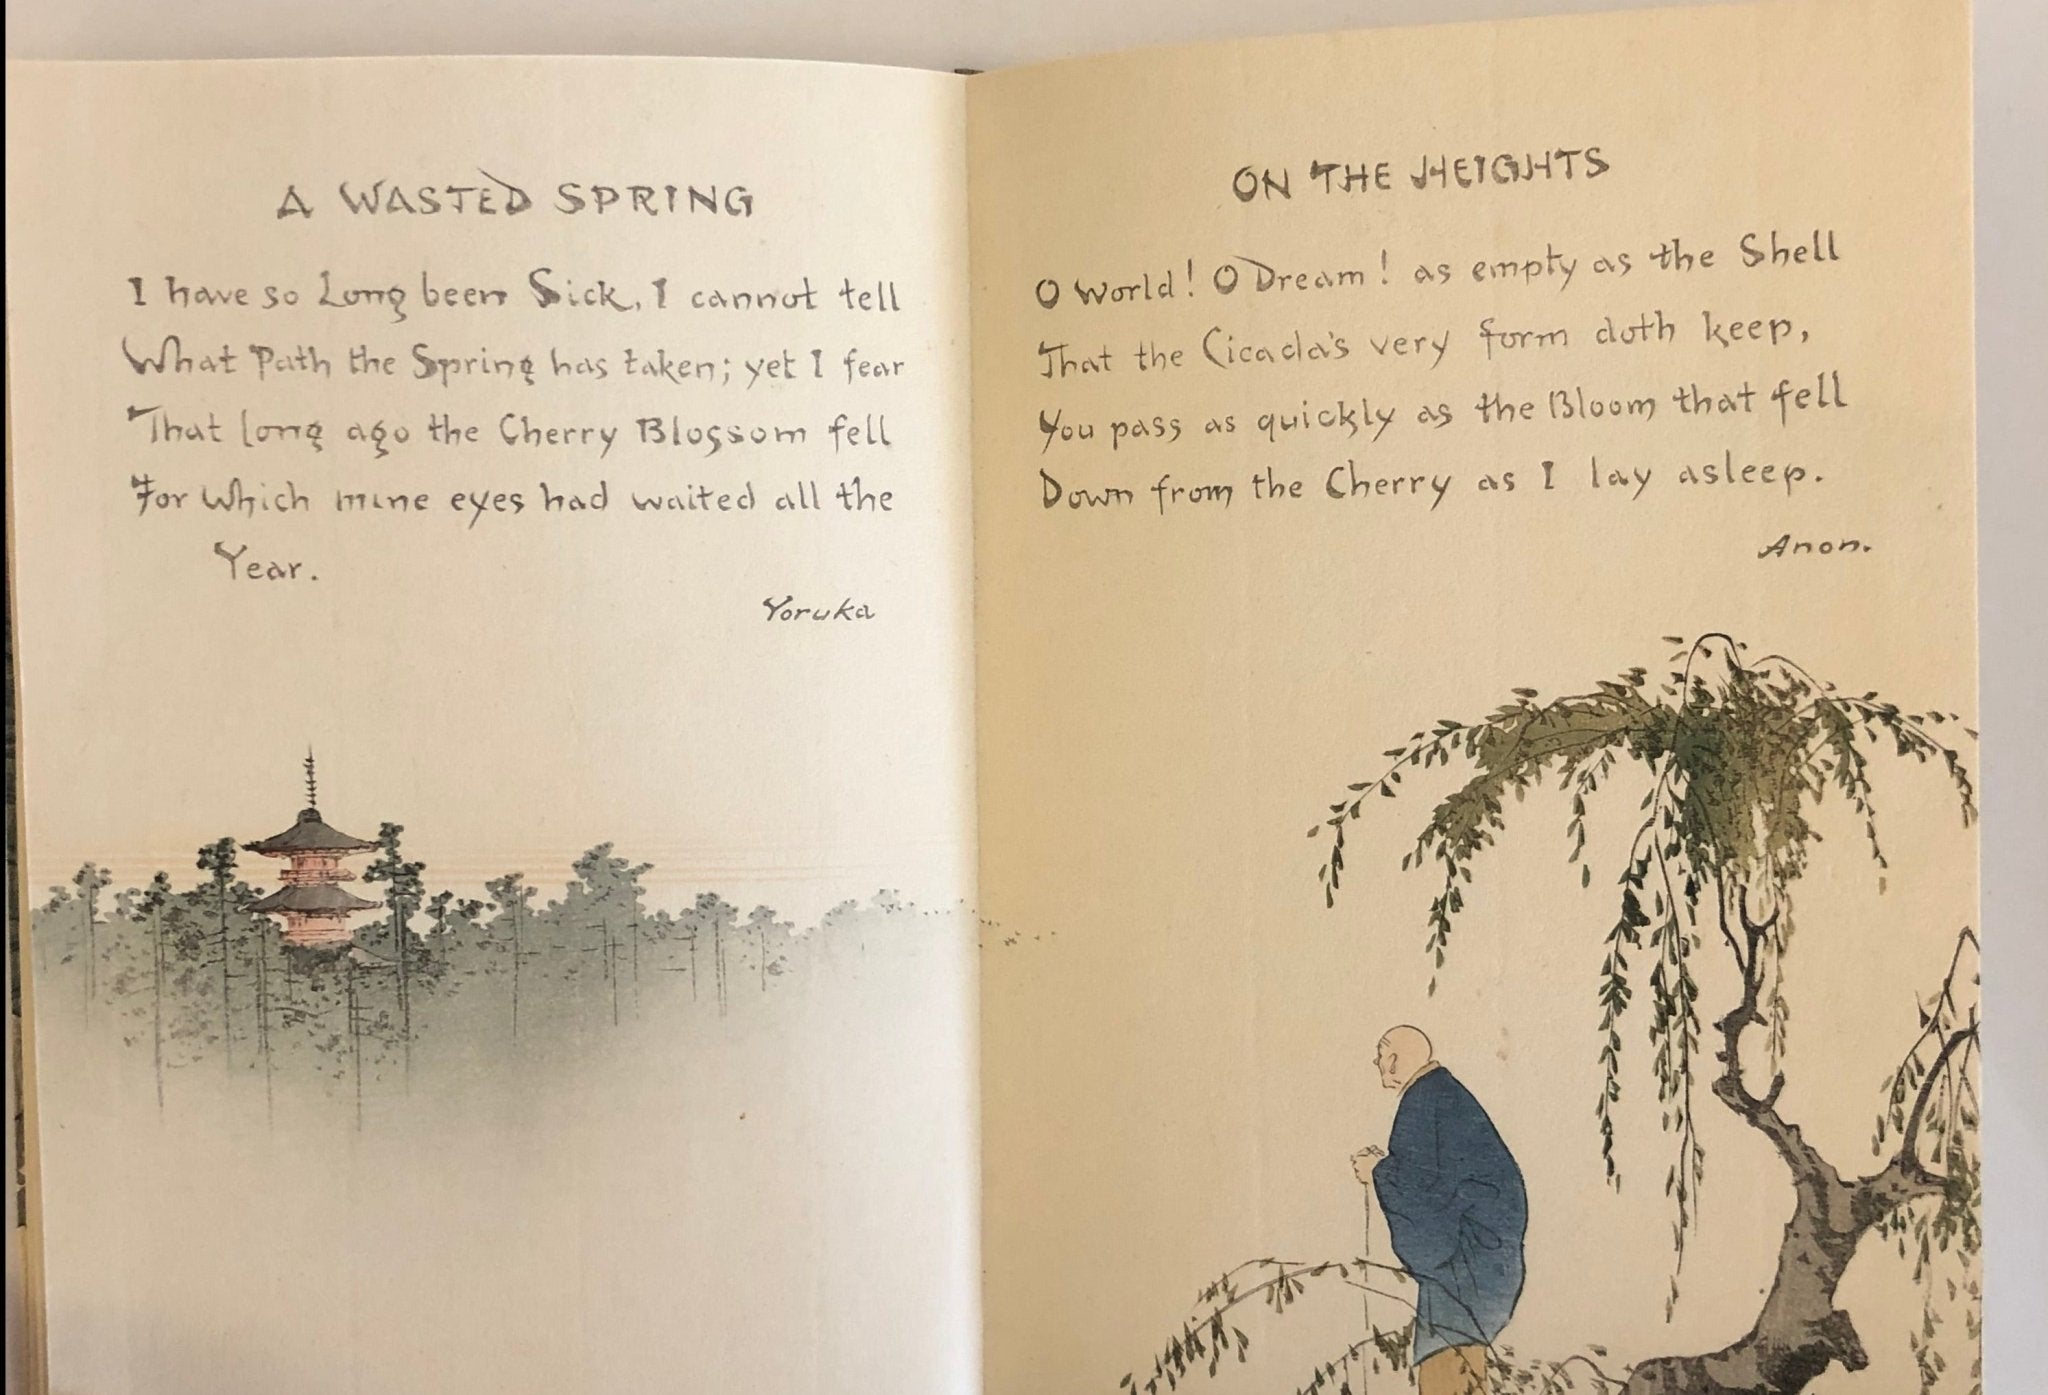 A WASTED SPRING
I have so Long been Sick, I cannot tell
What Path the Spring has taken; yet I fear
That long ago the Cherry Blossom fell
For which mine eyes had waited all the
Year.
Yoruka
ON THE HEIGHTS
O World! O Dream! as empty as the Shell
That the Cicada's very form doth keep,
You pass as quickly as the Bloom that fell
Down from the Cherry as I lay asleep.
Anon.